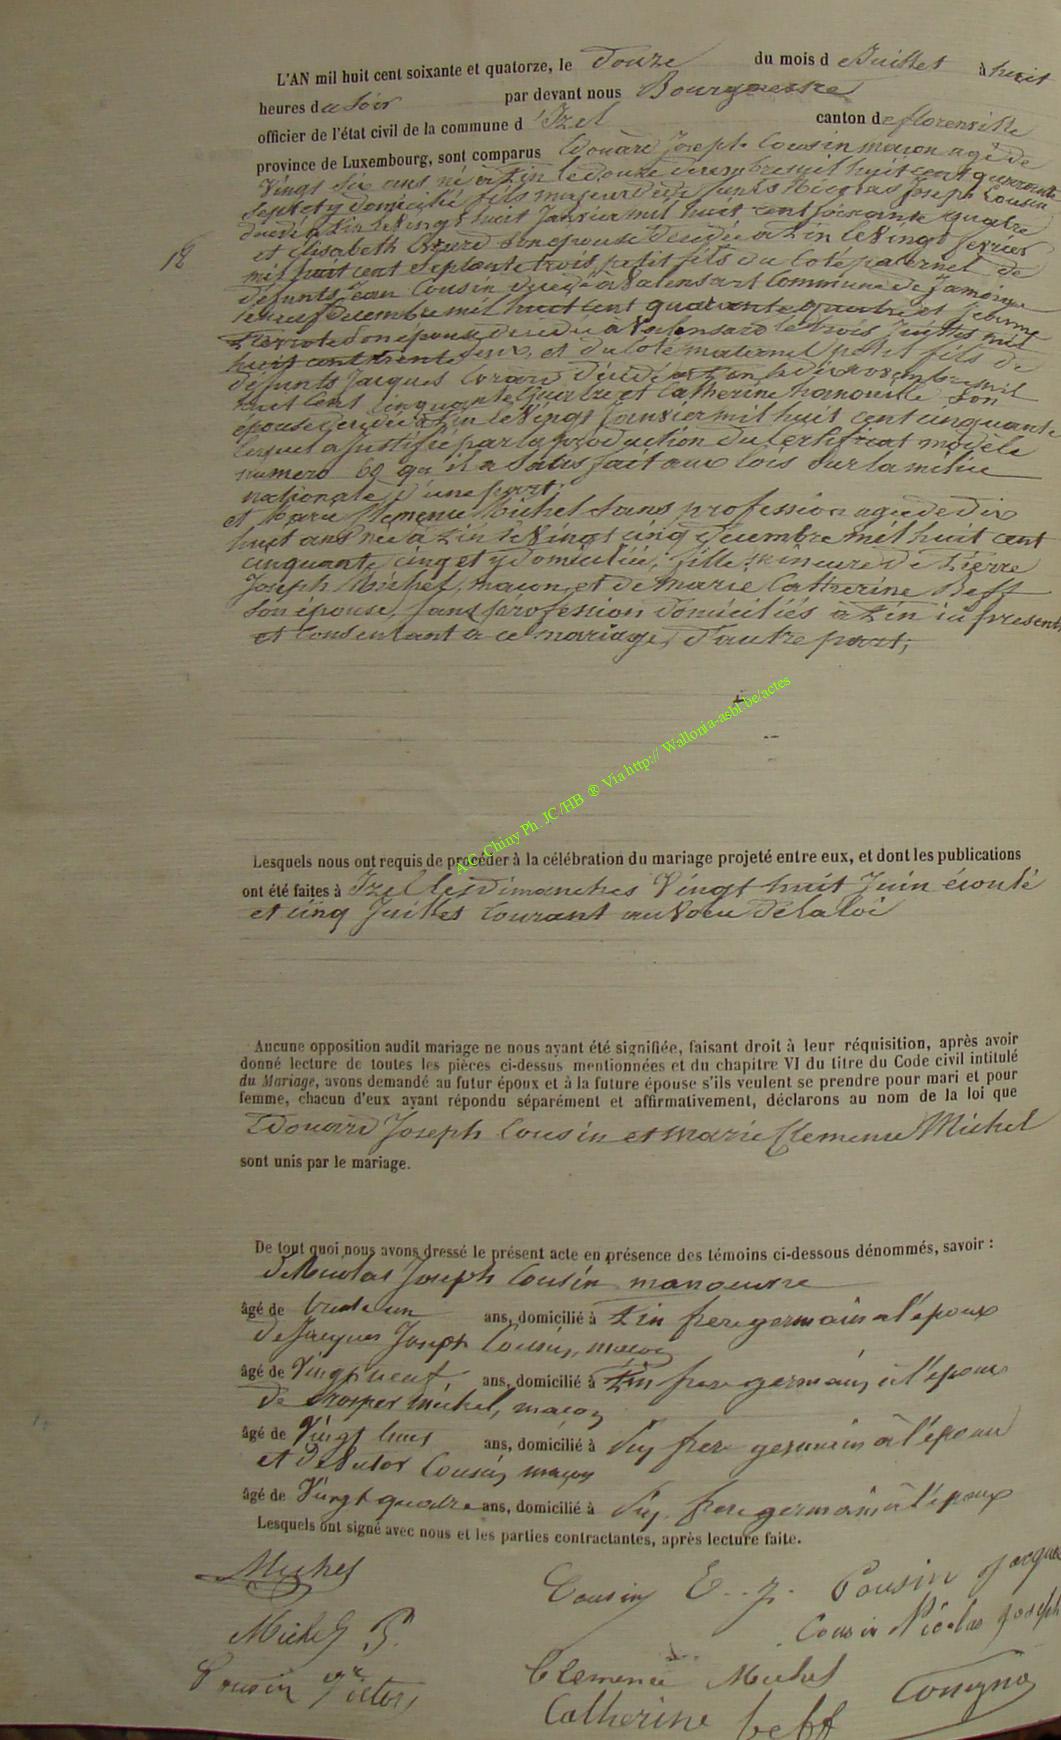 L'AN mil huit cent soixante et quatorze, le Douze du mois d e Juillet à huit
heures d u soir par devant nous Bourgmestre
officier de l'état civil de la commune d 'Izel canton de florenville
province de Luxembourg, sont comparus Edouard Joseph Cousin maçon agé de
Vingt six ans né à Pin le douze décembre mil huit cent quarante
sept et y domicilié fils majeur de defunts Nicolas Joseph Cousin
décédé à Pin le Vingt huit Janvier mil huit cent soixante quatre
18
et Elisabeth Evrard son épouse décédée à Pin le Vingt fevrier
mil huit cent septante trois, petit fils du coté paternel de
défunts Jean Cousin décédé à Valensart Commune de Jamoigne
le neuf Decembre mil huit cent quarante quatre et Jeanne
Pierrot son épouse décédée à Valensard le trois Juillet mil
huit cent trente deux, et du coté maternel petit fils de
défunts Jacques Evrard décédé à Pin le dix novembre mil
huit cent cinquante quatre et Catherine son
épouse décédée à Pin le Vingt Janvier mil huit cent cinquante
lequel a justifié par la production du certificat modèle
numero 69 qu'il a satisfait aux lois sur la milice
nationale d'une part;
et Marie Clemence Michel sans profession agée de dix
huit ans née à Pin le Vingt cinq décembre mil huit cent
cinquante cinq et y domiciliée, fille mineure de Pierre
Joseph Michel, maçon, et de marie Catherine Beff
son épouse, sans profession domiciliés à Pin ici present
et consentant a ce mariage, d'autre part;
A.C. Chiny Ph. JC/HB ® Via http:// Wallonia-asbl.be/actes
Lesquels nous ont requis de procéder à la célébration du mariage projeté entre eux, et dont les publications
ont été faites à Izel les Dimanches Vingt huit Juin écoulé
et cinq Juillet courant au voeu de la loi
Aucune opposition audit mariage ne nous ayant été signifiée, faisant droit à leur réquisition, après avoir
donné lecture de toutes les pièces ci-dessus mentionnées et du chapitre VI du titre du Code civil intitulé
du Mariage, avons demandé au futur époux et à la future épouse s'ils veulent se prendre pour mari et pour
femme, chacun d'eux ayant répondu séparément et affirmativement, déclarons au nom de la loi que
Edouard Joseph Cousin et Marie Clemence Michel
sont unis par le mariage.
De tout quoi nous avons dressé le présent acte en présence des témoins ci-dessous dénommés, savoir :
de Nicolas Joseph Cousin manoeuvre
âgé de trente un ans, domicilié à Pin frere germain a l'époux
de Jacques Joseph Cousin, maçon
âgé de Vingt neuf ans, domicilié à Pin frere germain à l'époux
de Prosper michel, maçon
âgé de Vingt huit ans, domicilié à Pin frere germain à l'épouse
et de Victor Cousin maçon
âgé de Vingt quatre ans, domicilié à Pin, frere germain à l'époux
Lesquels ont signé avec nous et les parties contractantes, après lecture faite.
Michel Cousin E. J. Cousin Jacques
Michel P. Cousin Nicolas Joseph
Cousin Victor Clemence Michel
Catherine beff